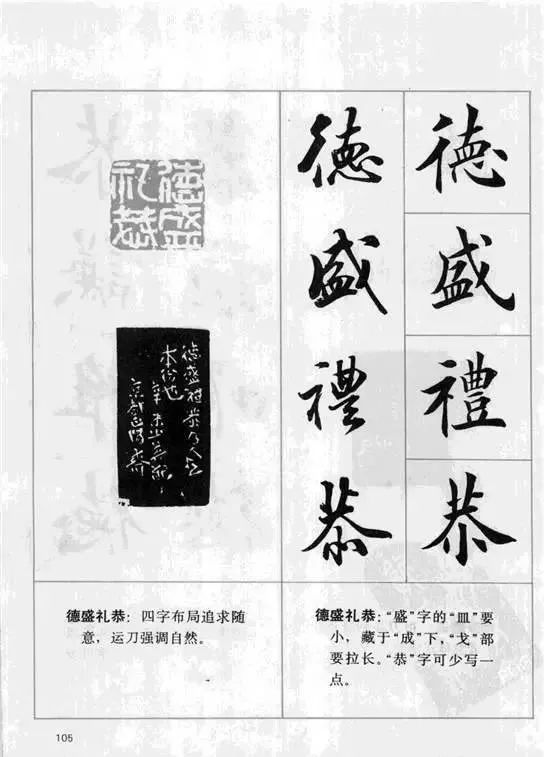 德盛禮恭
德盛禮恭
德盛礼恭
德盛礼恭乃人之
本德也
德盛礼恭：四字布局追求随
意，运刀强调自然。
德盛礼恭：“盛”字的“皿”要
小，藏于“成”下，“戈”部
要拉长。“恭”字可少写一
点。
105